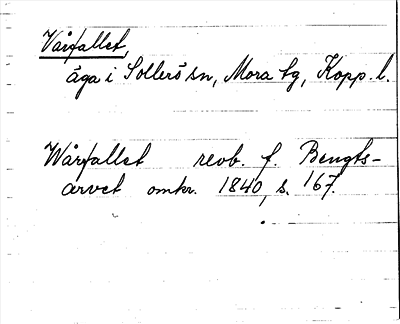 Vårfallet,
äga i Sollerö sn, Mora tg, Kopp. l.
Wårfallet revb. f. Bengts-
arvet omkr. 1840, s. 167.